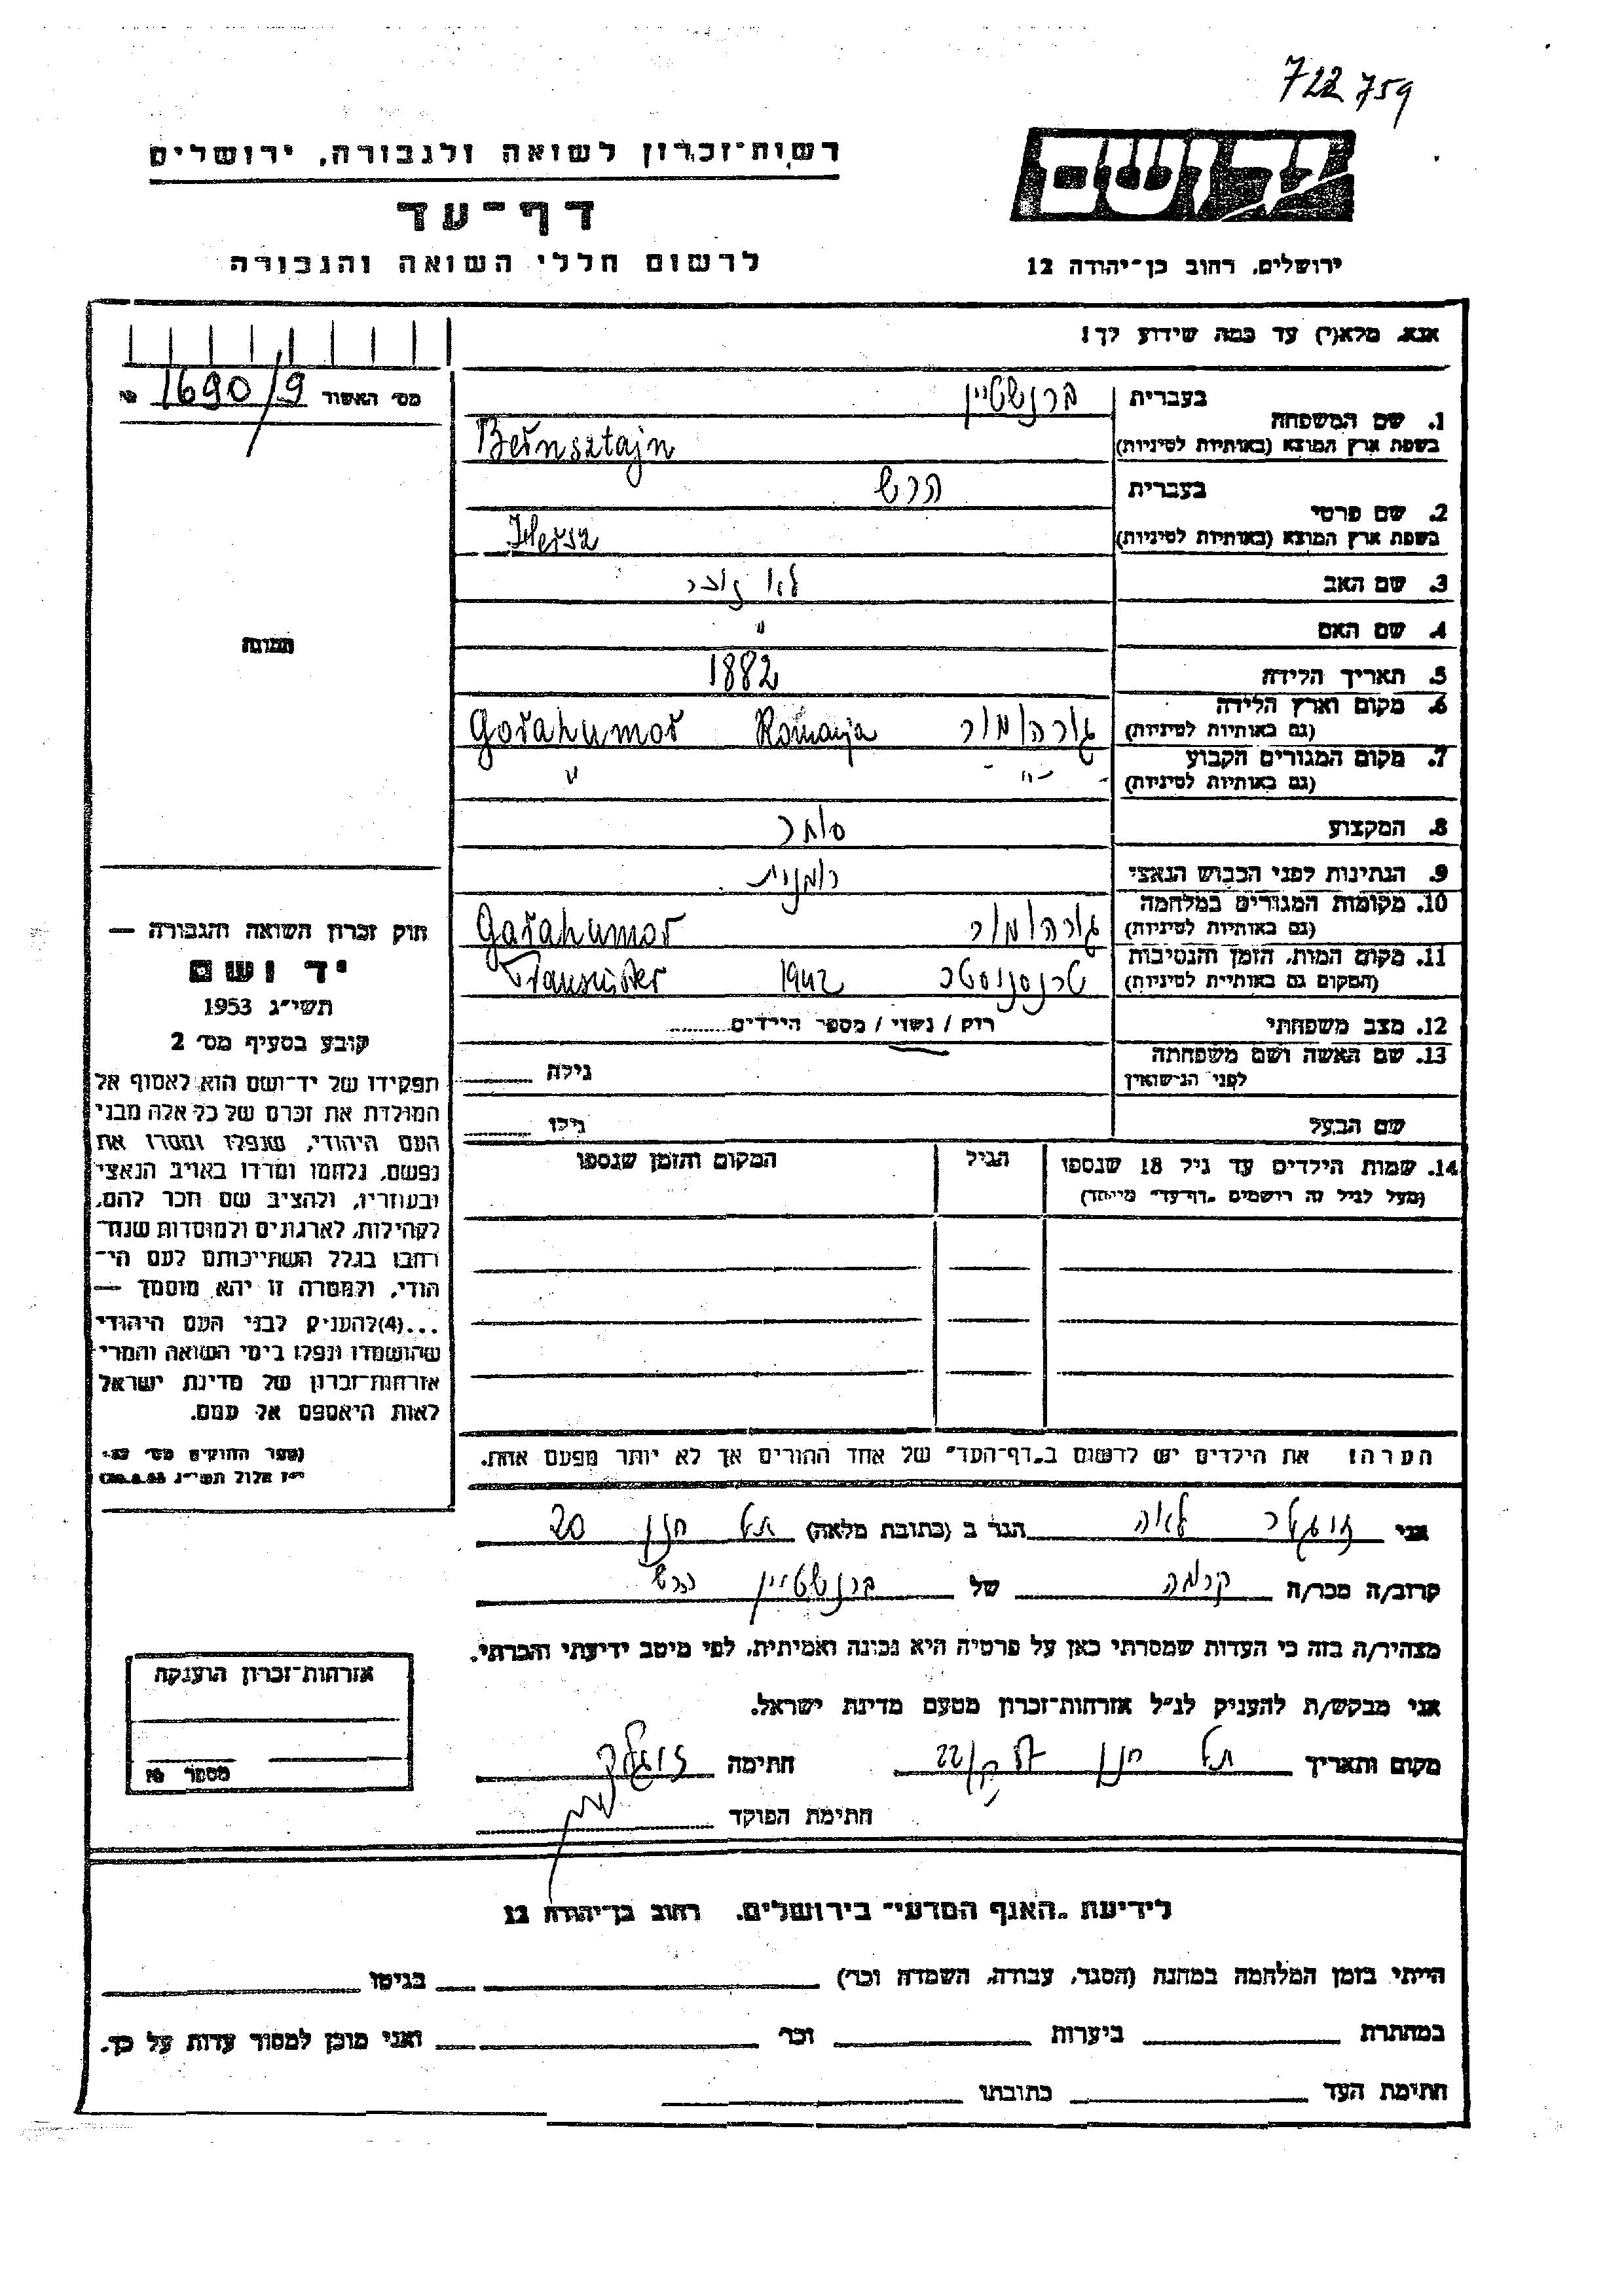 722 759
רשות־זכרון לשואה ולגבורה, ירושלים
דף־עד
לרשום חללי השואה והגבורה
ירושלים, רחוב בן־יהודה 12
אנא, מלא(י) עד כמה שידוע לך!
מס׳ האשור 1690/9 №
1. שם המשפחה
בעברית ברנשטיין
בשפת ארץ המוצא (באותיות לטיניות) Bernsztajn
2. שם פרטי
בעברית הרש
בשפת ארץ המוצא (באותיות לטיניות) Hersz
3. שם האב לא זוכר
4. שם האם "
5. תאריך הלידה 1882
6. מקום וארץ הלידה
(גם באותיות לטיניות) גורהומור Romanja Gorahumor
7. מקום המגורים הקבוע
(גם באותיות לטיניות) -"- "
8. המקצוע סוחר
9. הנתינות לפני הכבוש הנאצי רומנית
10. מקומות המגורים במלחמה
(גם באותיות לטיניות) גורהומור Gorahumor
11. מקום המות, הזמן והנסיבות
(המקום גם באותיית לטיניות) טרנסניסטר 1942 Transnister
12. מצב משפחתי רוק / נשוי / מספר הילדים
13. שם האשה ושם משפחתה
לפני הנישואין גילה
שם הבעל גילו
14. שמות הילדים עד גיל 18 שנספו הגיל המקום והזמן שנספו
(מעל לגיל זה רושמים „דף־עד" מייוחד)
הערה: את הילדים יש לרשום ב„דף־העד" של אחד ההורים אך לא יותר מפעם אחת.
תמונה
חוק זכרון השואה והגבורה —
יד ושם
תשי״ג 1953
קובע בסעיף מס׳ 2
תפקידו של יד־ושם הוא לאסוף אל
המולדת את זכרם של כל אלה מבני
העם היהודי, שנפלו ומסרו את
נפשם, נלחמו ומרדו באויב הנאצי
ובעוזריו, ולהציב שם וזכר להם,
לקהילות, לארגונים ולמוסדות שנח־
רבו בגלל השתייכותם לעם הי־
הודי, ולמטרה זו יהא מוסמך —
...(4)להעניק לבני העם היהודי
שהושמדו ונפלו בימי השואה והמרי
אזרחות־זכרון של מדינת ישראל
לאות היאספם אל עמם.
(ספר החוקים מס׳ 132
י״ז אלול תשי״ג 28.8.53)
אני לאה הגר ב (כתובת מלאה) תל חנן 20
קרוב/ה מכר/ה קרובה של ברנשטיין הרש
מצהיר/ה בזה כי העדות שמסרתי כאן על פרטיה היא נכונה ואמיתית, לפי מיטב ידיעתי והכרתי.
אני מבקש/ת להעניק לנ״ל אזרחות־זכרון מטעם מדינת ישראל.
מקום ותאריך תל חנן חתימה
חתימת הפוקד
אזרחות־זכרון הוענקה
מספר №
לידיעת „האגף המדעי" בירושלים, רחוב בן־יהודה 12
הייתי בזמן המלחמה במחנה (הסגר, עבודה, השמדה וכר׳) בגיטו
במחתרת ביערות וכר׳ ואני מוכן למסור עדות על כך.
חתימת העד כתובתו